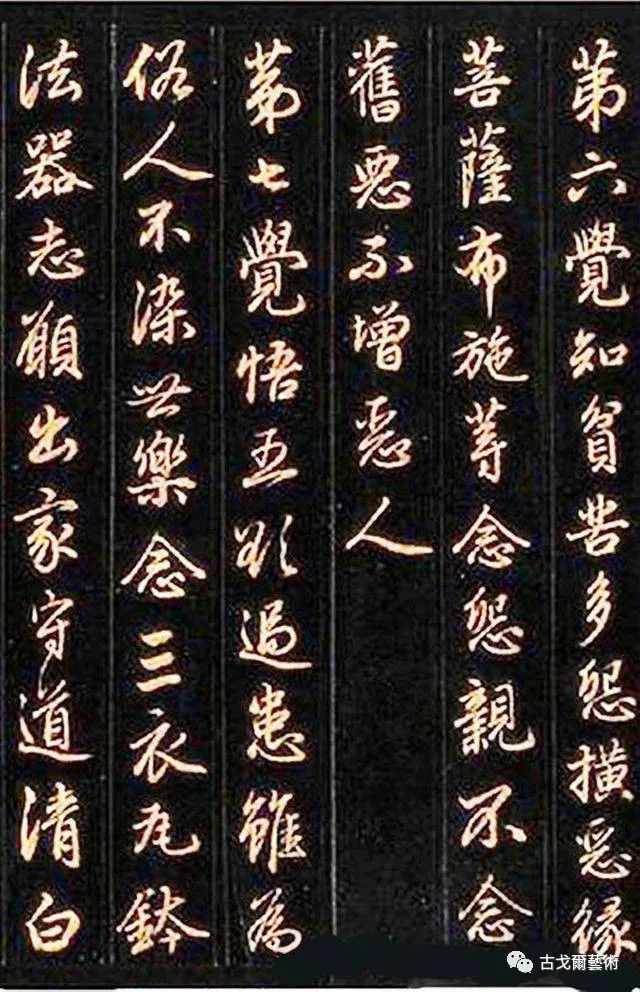 苐六覺知貧苦多怨橫惡緣
菩薩布施等念怨親不念
舊惡不增惡人
苐七覺悟五欲過患雖為
俗人不染世樂念三衣瓦鉢
法器志願出家守道清白
古戈爾藝術